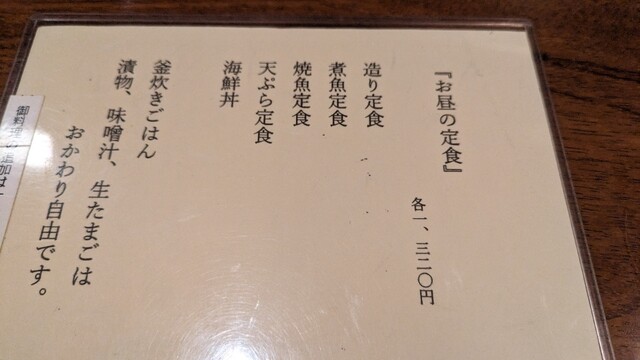 『お昼の定食』
各一、三二〇円
造り定食
煮魚定食
焼魚定食
天ぷら定食
海鮮丼
釜炊きごはん
漬物、味噌汁、生たまごは
おかわり自由です。
御料理の追加は